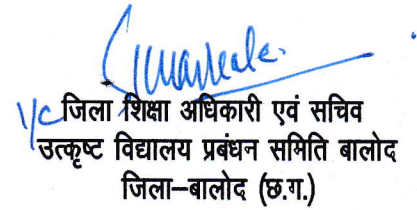 I/C जिला शिक्षा अधिकारी एवं सचिव
उत्कृष्ट विद्यालय प्रबंधन समिति बालोद
जिला–बालोद (छ.ग.)